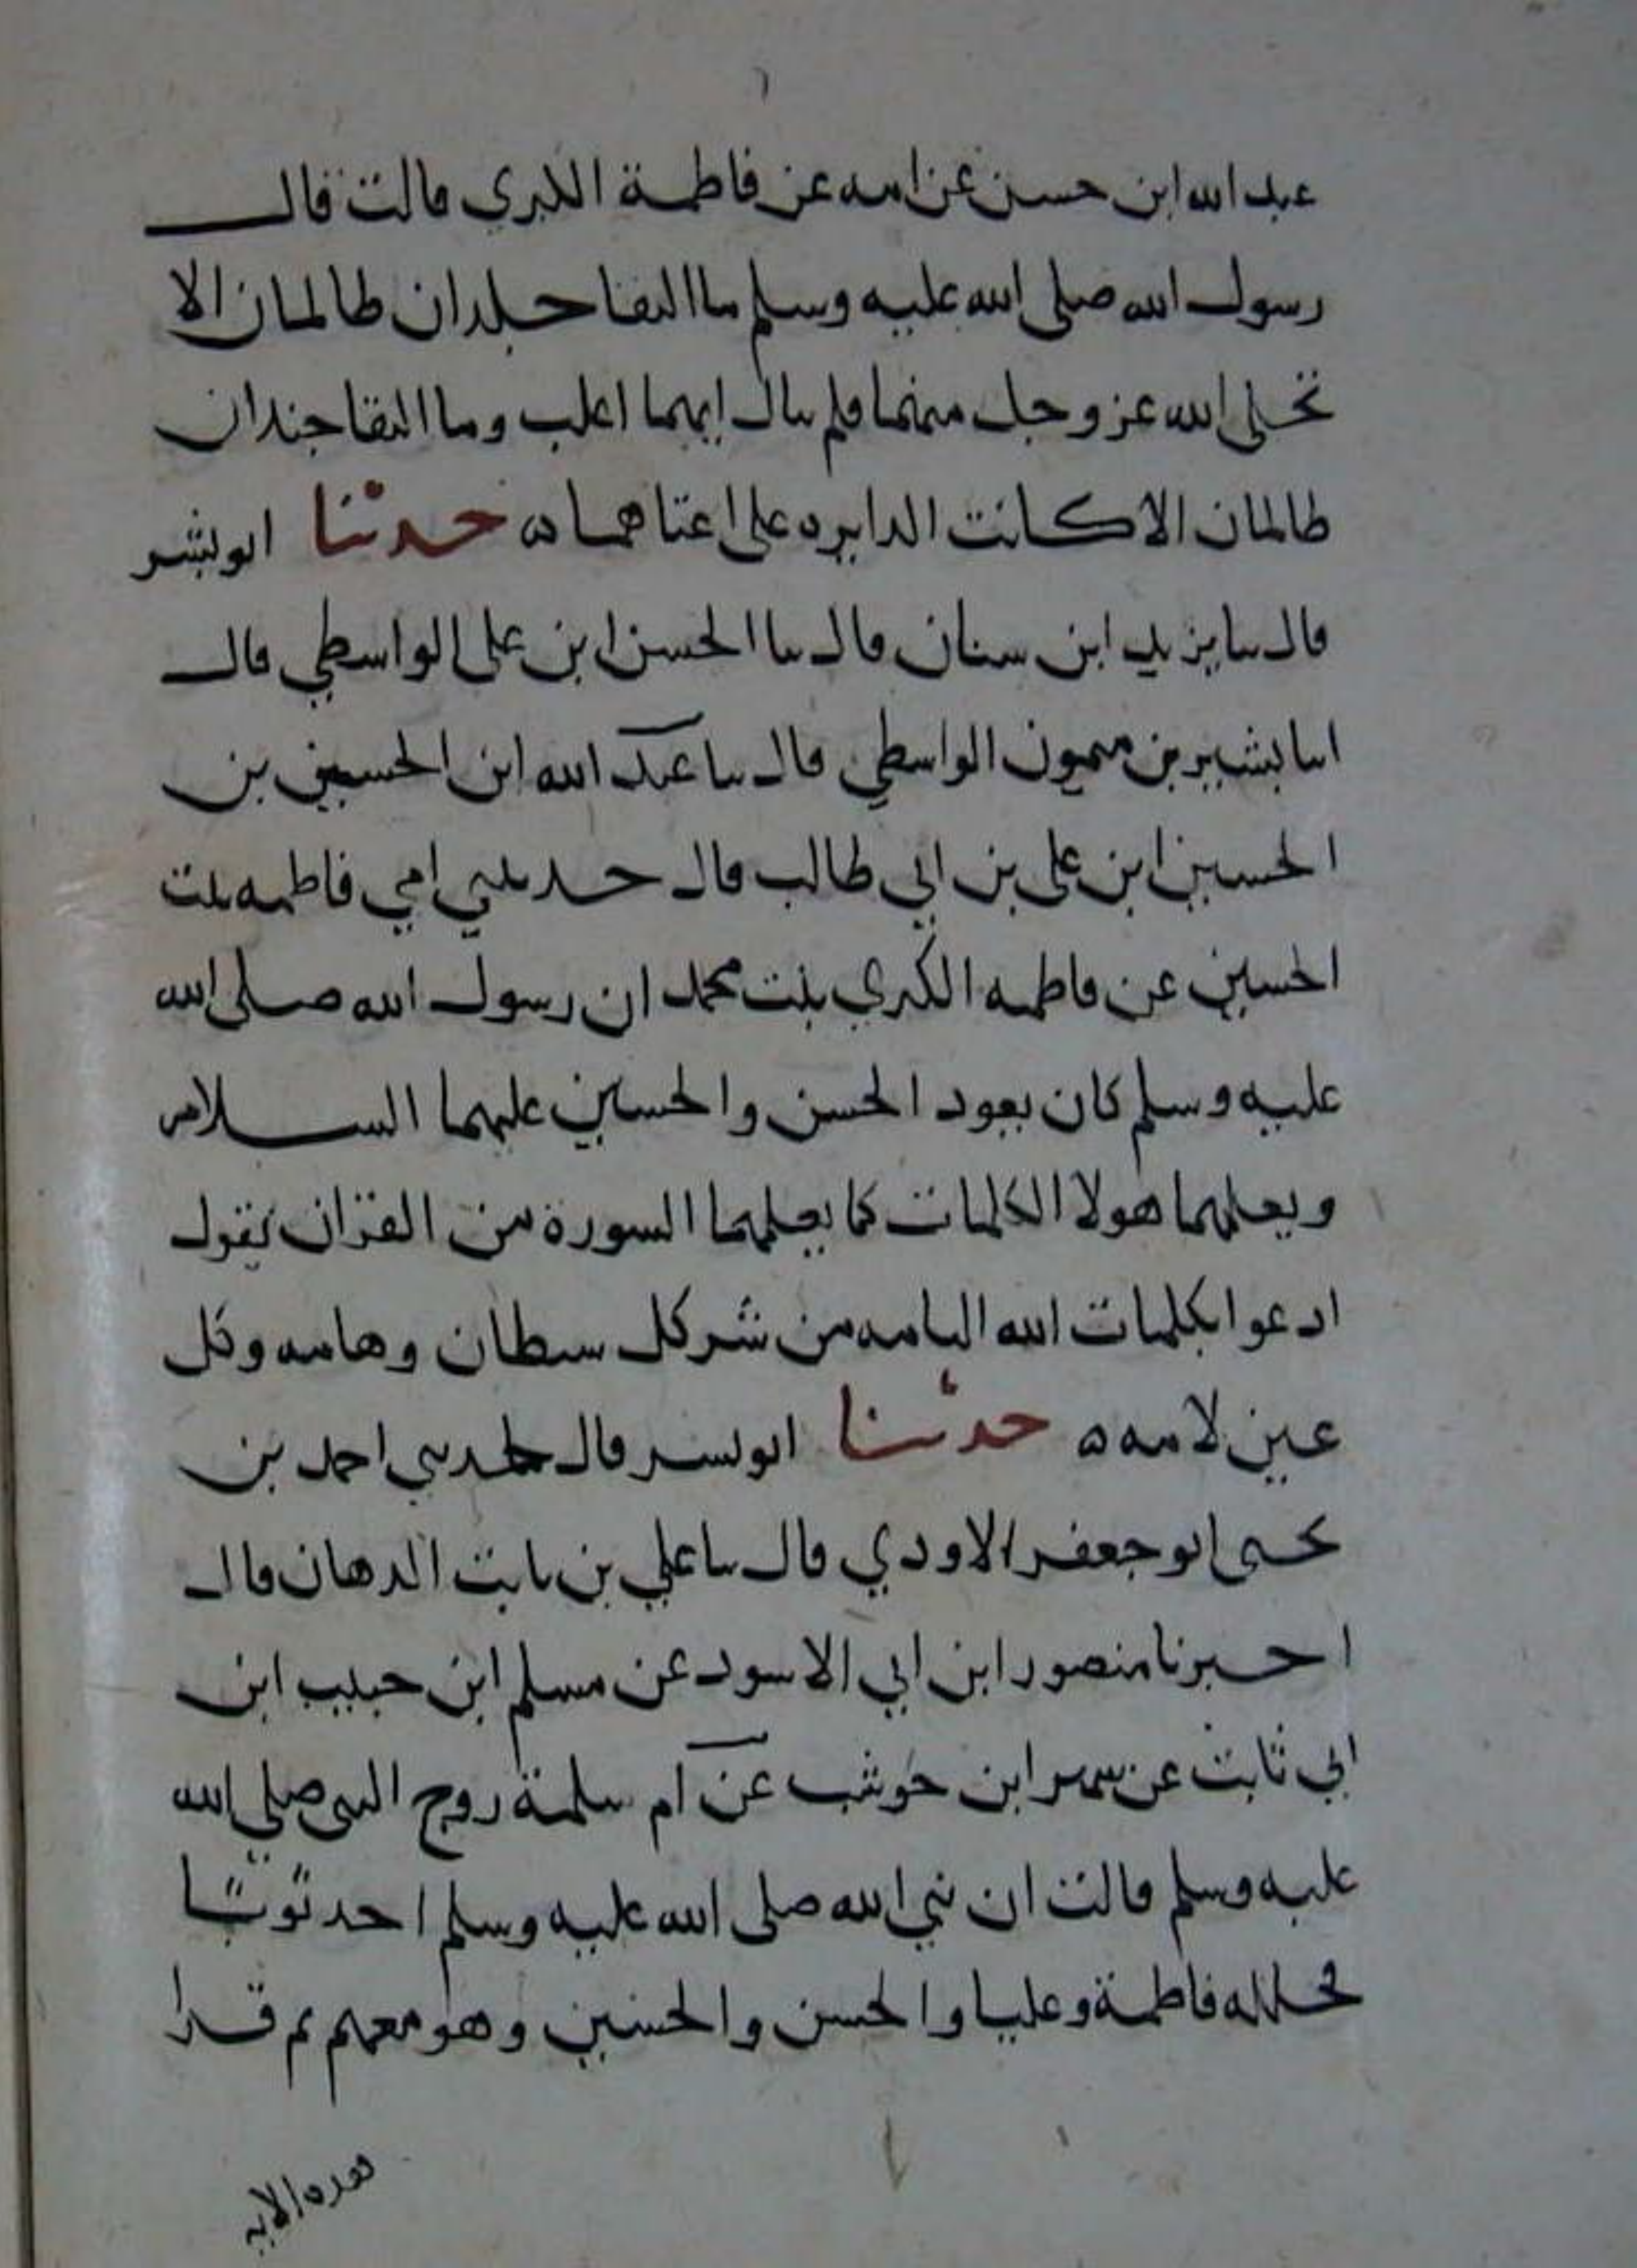 عبد الله ابن حسن عن امه عن فاطمة الكبري قالت قال
رسول الله صلى الله عليه وسلم ما التقا جندان ظالمان الا
تخلى الله عز وجل منهما فلم يبال ايهما اغلب وما التقا جندان
ظالمان الا كانت الدايره على اعتاهما ه حدثنا ابو بشر
قال سا يزيد ابن سنان قال سا الحسن ابن على الواسطي قال
اسا بشير بن ميمون الواسطي قال سا عبد الله ابن الحسين بن
الحسين ابن على بن ابي طالب قال حدثتني امي فاطمه بنت
الحسين عن فاطمه الكبري بنت محمد ان رسول الله صلى الله
عليه وسلم كان يعود الحسن والحسين عليهما السلام
ويعلمهما هولا الكلمات كما يعلمهما السورة من القران يقول
ادعوا بكلمات الله التامه من شر كل شيطان وهامه وكل
عين لامه ه حدثنا ابو بشر قال حدثني احمد بن
يحيى ابو جعفر الاودي قال سا علي بن ثابت الدهان قال
اخبرنا منصور ابن ابي الاسود عن مسلم ابن حبيب ابن
ابي ثابت عن شهر ابن حوشب عن ام سلمة زوج النبي صلي الله
عليه وسلم قالت ان نبي الله صلى الله عليه وسلم احد ثوبا
فجلله فاطمة وعليا والحسن والحسين وهو معهم ثم قرا
هذه الايه